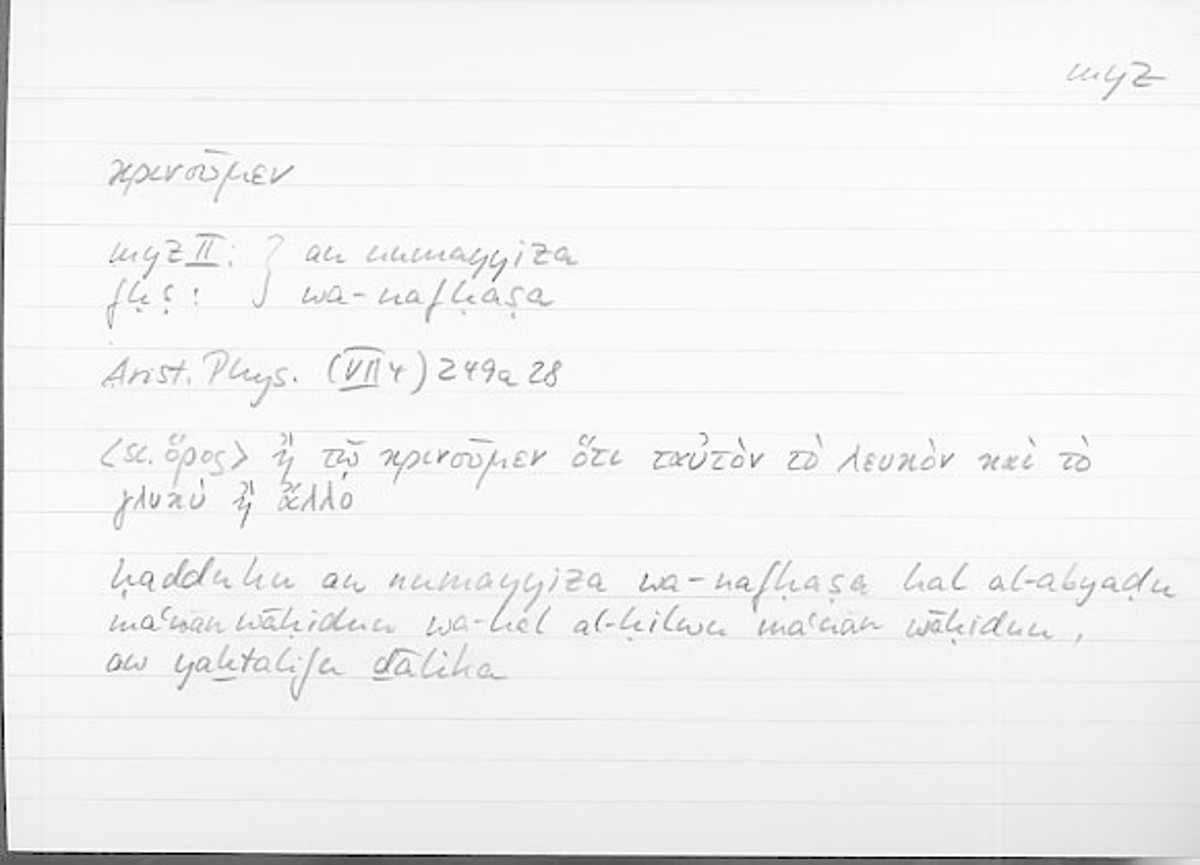 myz
κρινοῦμεν
myz II : } an numayyiza
fḥṣ : } wa-nafḥaṣa
Arist. Phys. (VII 4) 249a 28
<sc. ὅρος> ἢ τῷ κρινοῦμεν ὅτι ταὐτὸν τὸ λευκὸν καὶ τὸ
γλυκὺ ἢ ἄλλο
ḥadduhu an numayyiza wa-nafḥaṣa hal al-abyaḍu
maʿnan wāḥidun wa-hal al-ḥilwu maʿnan wāḥidun,
aw yaḫtalifu ḏālika